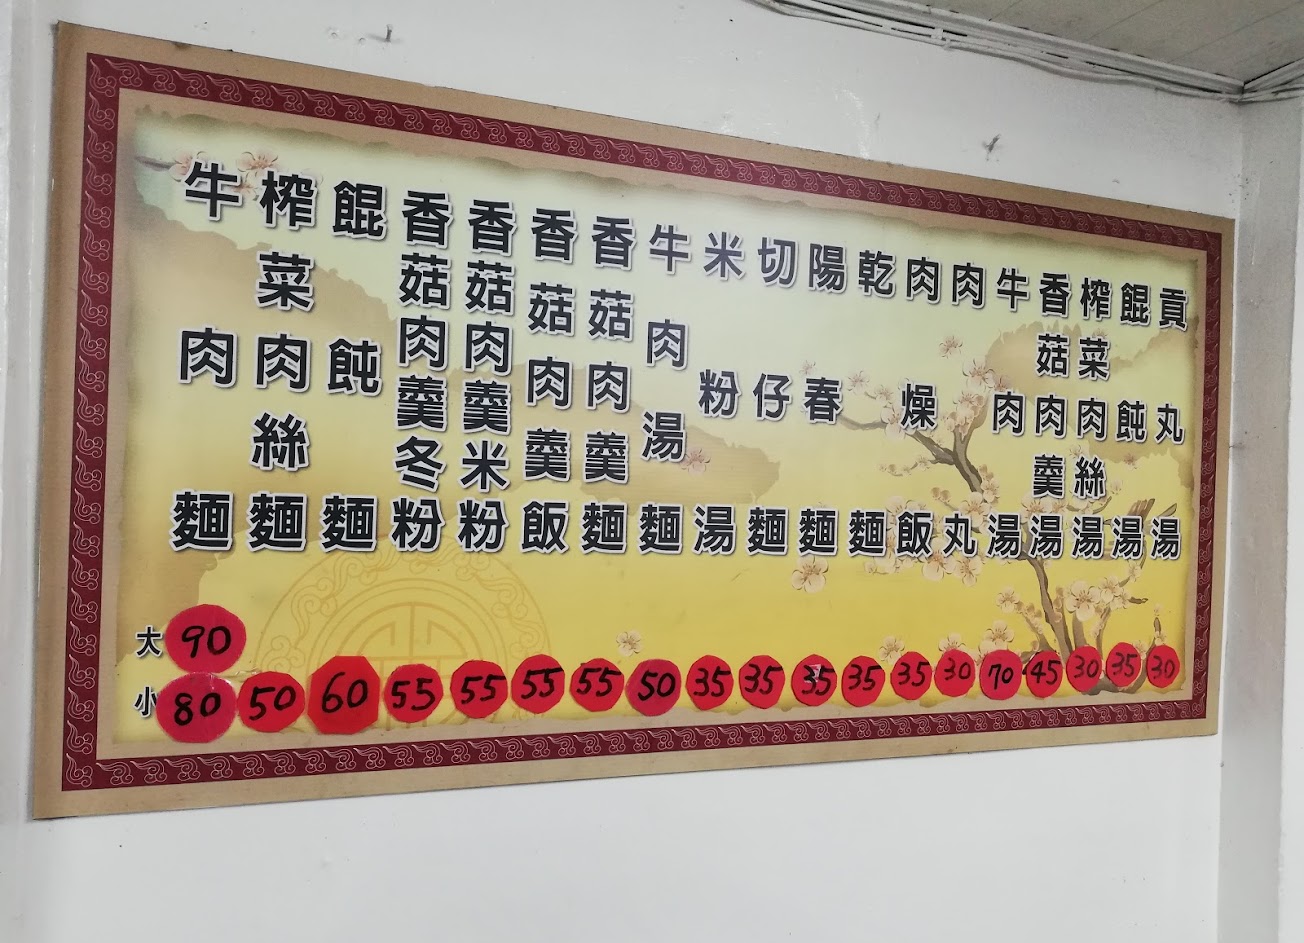 牛肉麵
榨菜肉絲麵
餛飩麵
香菇肉羹冬粉
香菇肉羹米粉
香菇肉羹飯
香菇肉羹麵
牛肉湯麵
米粉湯
切仔麵
陽春麵
乾麵
肉燥飯
肉丸
牛肉湯
香菇肉羹湯
榨菜肉絲湯
餛飩湯
貢丸湯
大 90
小 80 50 60 55 55 55 55 50 35 35 35 35 35 30 70 45 30 35 30